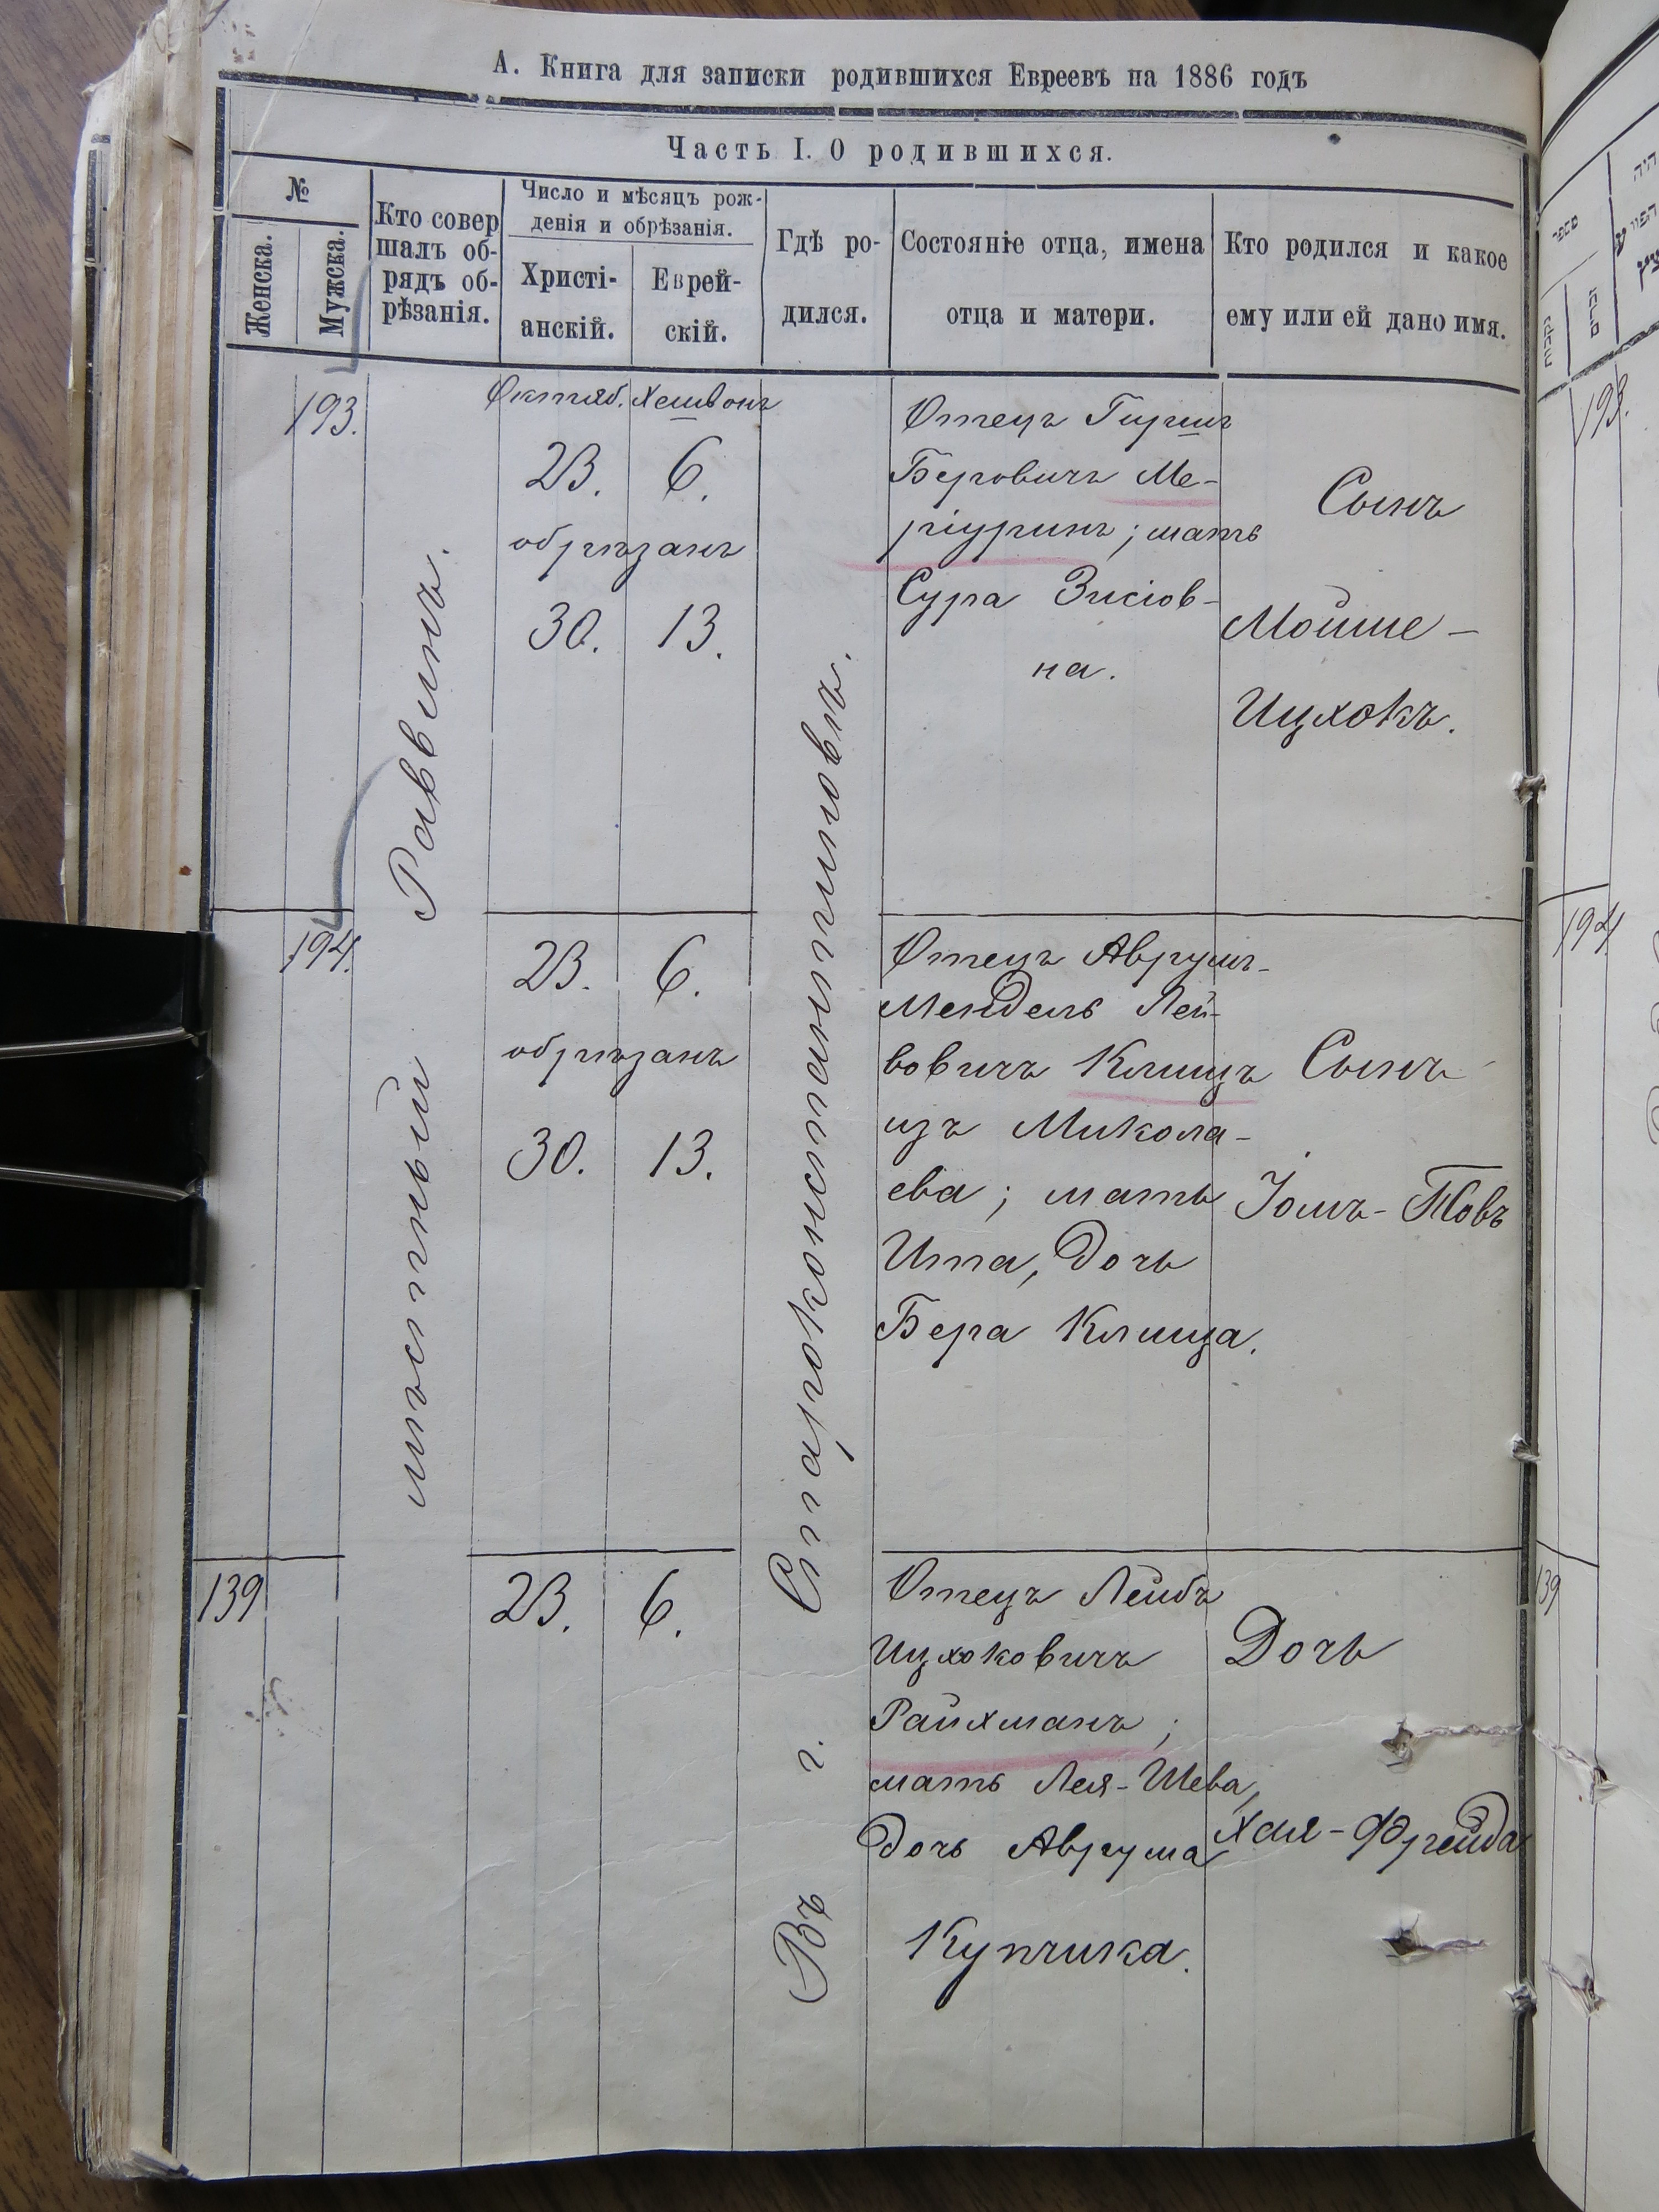 А. Книга для записки родившихся Евреевъ на 1886 годъ
Часть I. О родившихся.
№
Женска.
Мужска.
Кто совер
шалъ об-
рядъ об-
рѣзанія.
Число и мѣсяцъ рож-
денія и обрѣзанія.
Христі-
анскій.
Еврей-
скій.
Гдѣ ро-
дился.
Состояніе отца, имена
отца и матери.
Кто родился и какое
ему или ей дано имя.
мѣстный Раввинъ.
Въ г. Староконстантиновѣ.
193.
Октяб. Хешвонъ
23. 6.
обрѣзанъ
30. 13.
Отецъ Гиршъ
Беровичъ Ме-
ріуринъ; мать
Сура Зисіов-
на.
Сынъ
Мойше-
Ицхокъ.
194.
23. 6.
обрѣзанъ
30. 13.
Отецъ Аврумъ-
Мендель Лей-
бовичъ Клицъ
изъ Микола-
ева; мать
Ита, дочь
Бера Клица.
Сынъ
Іомъ-Товъ
139
23. 6.
Отецъ Лейбъ
Ицхоковичъ
Райхманъ;
мать Лея-Шева,
дочь Аврума
Купчика.
Дочь
Хая-Фрейда
193.
194
139